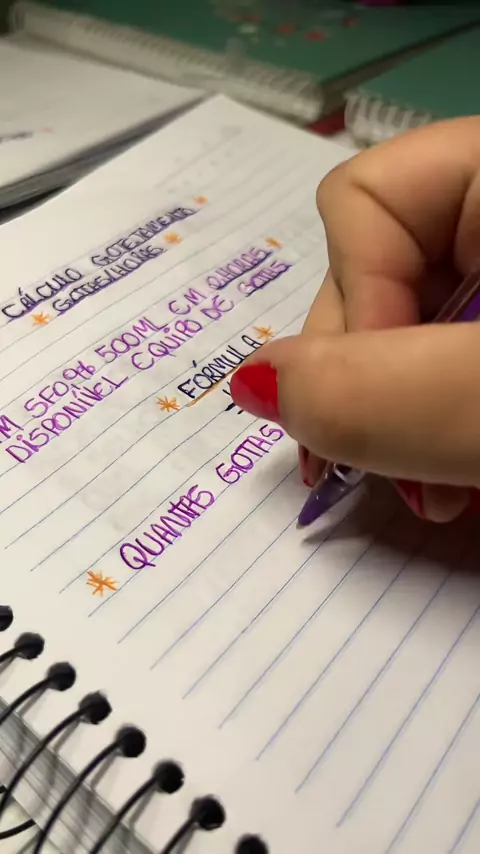 CÁLCULO GOTEJAMENTO
GOTAS/HORAS
SF0,9% 500ML EM
DISPONÍVEL EQUIPO DE GOTAS
FÓRMULA
QUANTAS GOTAS